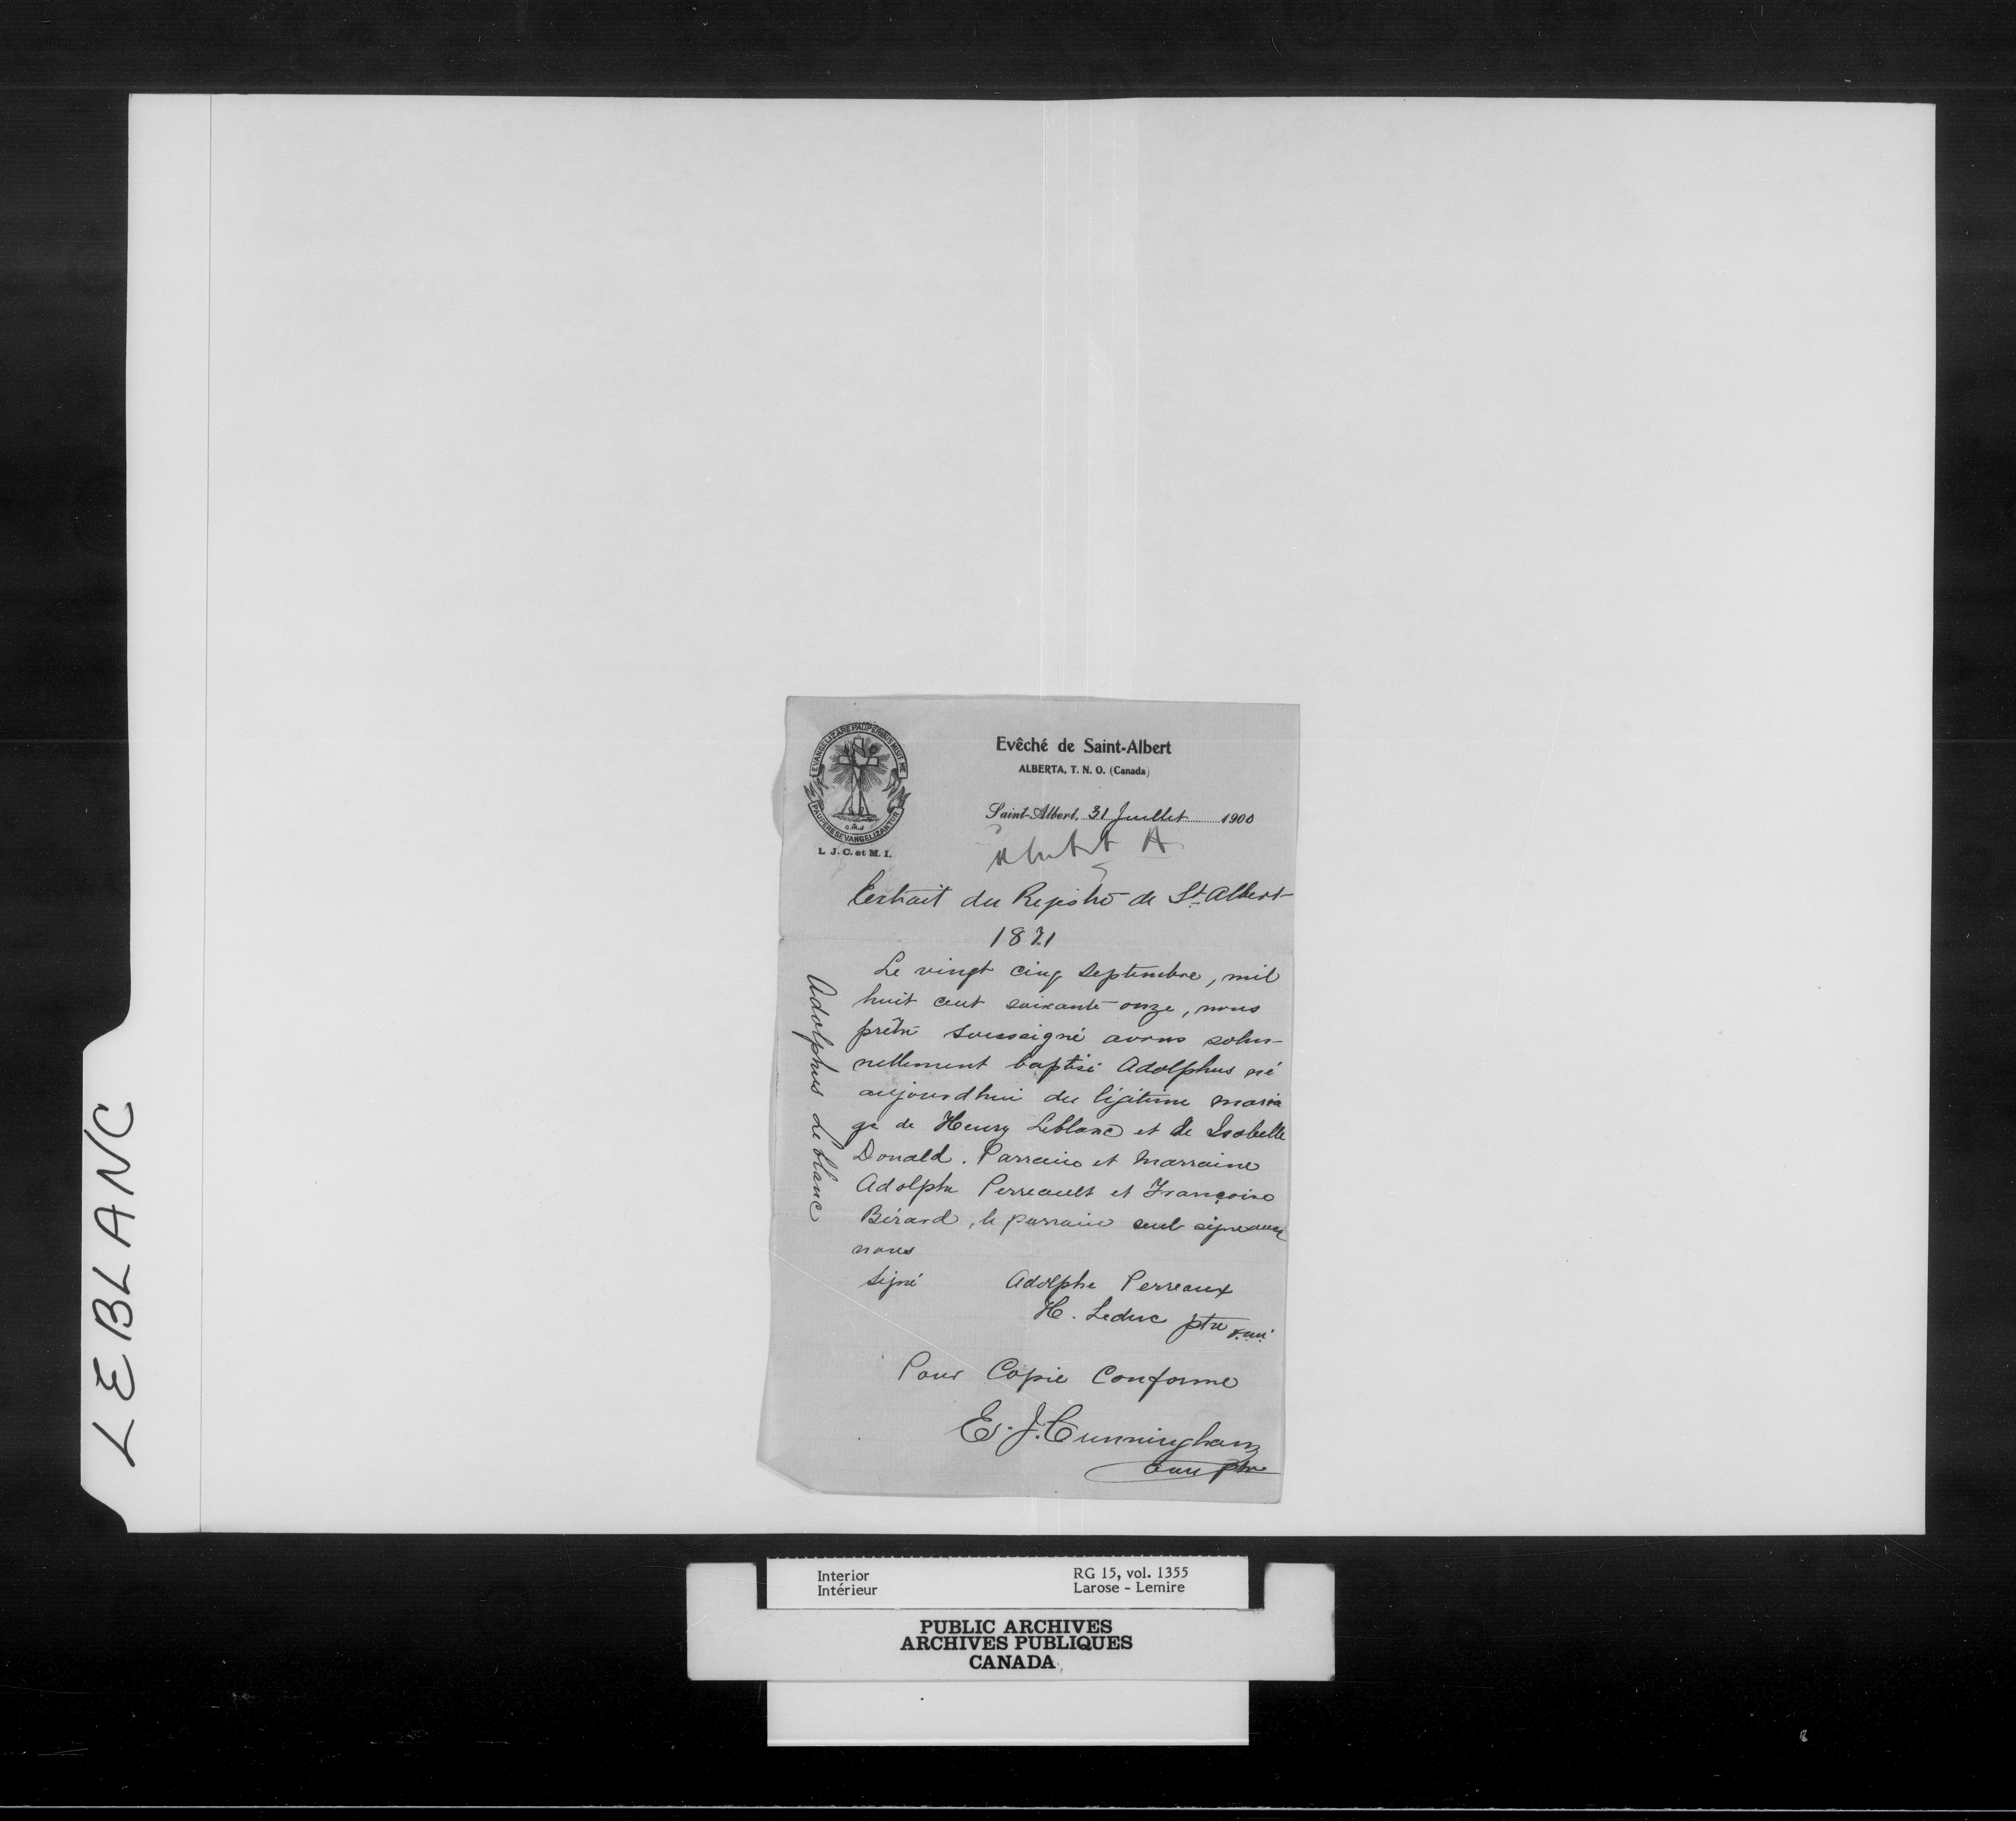 EVANGELIZARE PAUPERIBUS MISIT ME
PAUPERES EVANGELIZANTUR
O.M.I
L. J. C. et M. I.
Evêché de Saint-Albert
ALBERTA, T. N. O. (Canada)
Saint-Albert, 31 Juillet 1900
A
Extrait du Registre de St. Albert
1871
Le vingt cinq Septembre, mil
huit cent soixante-onze, nous
prêtre soussigné avons solen-
nellement baptisé Adolphus né
aujourdhui du légitime maria
ge de Henry Leblanc et de Isabelle
Donald. Parrain et Marraine
Adolphe Perreault et Françoise
Bérard, le parrain seul signe avec
nous
Signé Adolphe Perreaux
H. Leduc ptre o.m.i.
Pour Copie Conforme
E. J. Cunningham
o.m.i ptre
Adolphus Leblanc
LEBLANC
Interior
Intérieur
RG 15, vol. 1355
Larose - Lemire
PUBLIC ARCHIVES
ARCHIVES PUBLIQUES
CANADA